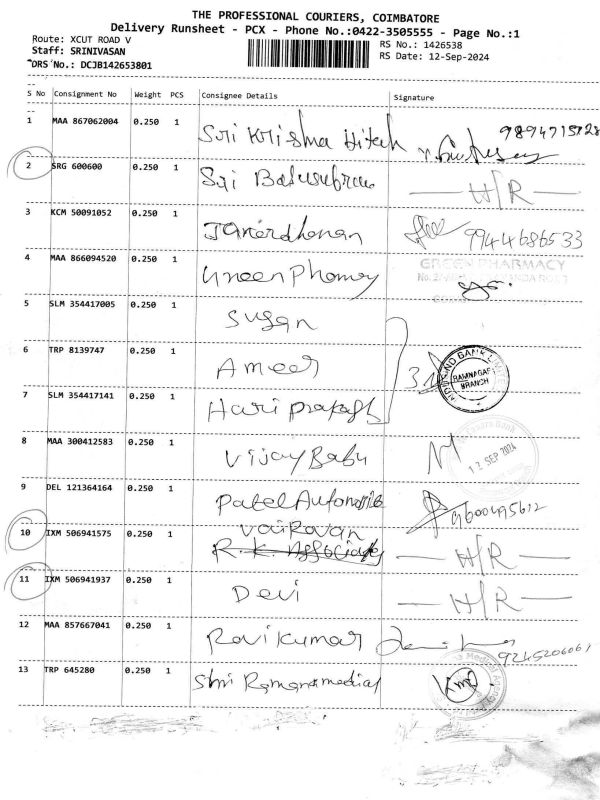 THE PROFESSIONAL COURIERS, COIMBATORE
Delivery Runsheet - PCX - Phone No.:0422-3505555 - Page No.:1
Route: XCUT ROAD V
RS No.: 1426538
Staff: SRINIVASAN
RS Date: 12-Sep-2024
DRS No.: DCJB142653801
S No Consignment No Weight PCS Consignee Details Signature
1 MAA 867062004 0.250 1 Sri Krishna Hitech 9894715728
2 SRG 600600 0.250 1 Sri Balusubram H/R
3 KCM 50091052 0.250 1 Janardhanan 9944686533
4 MAA 866094520 0.250 1 Green Phamay GREEN PHARMACY
5 SLM 354417005 0.250 1 Sugan
6 TRP 8139747 0.250 1 Ameer 3 INDUSIND BANK LIMITED RAMNAGAR BRANCH
7 SLM 354417141 0.250 1 Hari prakash
8 MAA 300412583 0.250 1 Vijay Babu 12 SEP 2024
9 DEL 121364164 0.250 1 Patel Automobile 9600495612
10 IXM 506941575 0.250 1 Vairavan H/R
R.K. Associates
11 IXM 506941937 0.250 1 Devi H/R
12 MAA 857667041 0.250 1 Ravi Kumar 9245206061
13 TRP 645280 0.250 1 Shri Ramana medical